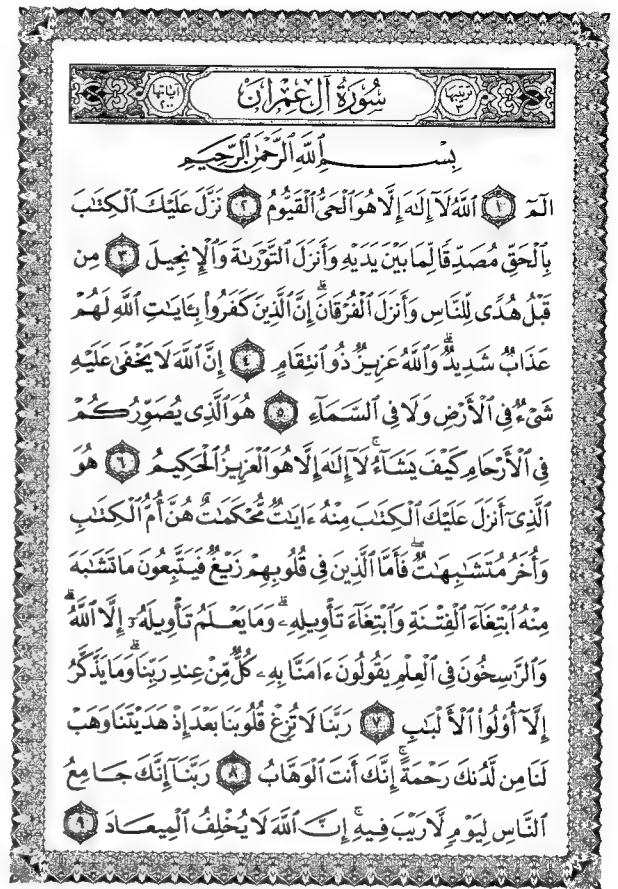 ترتيبها ٣ سُورَةُ آلِ عِمْرَان آياتها ٢٠٠
بِسْمِ ٱللَّهِ ٱلرَّحْمَٰنِ ٱلرَّحِيمِ
الٓمٓ ١ ٱللَّهُ لَآ إِلَٰهَ إِلَّا هُوَ ٱلْحَىُّ ٱلْقَيُّومُ ٢ نَزَّلَ عَلَيْكَ ٱلْكِتَٰبَ
بِٱلْحَقِّ مُصَدِّقًا لِّمَا بَيْنَ يَدَيْهِ وَأَنزَلَ ٱلتَّوْرَىٰةَ وَٱلْإِنجِيلَ ٣ مِن
قَبْلُ هُدًى لِّلنَّاسِ وَأَنزَلَ ٱلْفُرْقَانَ ۗ إِنَّ ٱلَّذِينَ كَفَرُوا۟ بِـَٔايَٰتِ ٱللَّهِ لَهُمْ
عَذَابٌ شَدِيدٌ ۗ وَٱللَّهُ عَزِيزٌ ذُو ٱنتِقَامٍ ٤ إِنَّ ٱللَّهَ لَا يَخْفَىٰ عَلَيْهِ
شَىْءٌ فِى ٱلْأَرْضِ وَلَا فِى ٱلسَّمَآءِ ٥ هُوَ ٱلَّذِى يُصَوِّرُكُمْ
فِى ٱلْأَرْحَامِ كَيْفَ يَشَآءُ ۚ لَآ إِلَٰهَ إِلَّا هُوَ ٱلْعَزِيزُ ٱلْحَكِيمُ ٦ هُوَ
ٱلَّذِىٓ أَنزَلَ عَلَيْكَ ٱلْكِتَٰبَ مِنْهُ ءَايَٰتٌ مُّحْكَمَٰتٌ هُنَّ أُمُّ ٱلْكِتَٰبِ
وَأُخَرُ مُتَشَٰبِهَٰتٌ ۖ فَأَمَّا ٱلَّذِينَ فِى قُلُوبِهِمْ زَيْغٌ فَيَتَّبِعُونَ مَا تَشَٰبَهَ
مِنْهُ ٱبْتِغَآءَ ٱلْفِتْنَةِ وَٱبْتِغَآءَ تَأْوِيلِهِۦ ۗ وَمَا يَعْلَمُ تَأْوِيلَهُۥٓ إِلَّا ٱللَّهُ ۗ
وَٱلرَّٰسِخُونَ فِى ٱلْعِلْمِ يَقُولُونَ ءَامَنَّا بِهِۦ كُلٌّ مِّنْ عِندِ رَبِّنَا ۗ وَمَا يَذَّكَّرُ
إِلَّآ أُو۟لُوا۟ ٱلْأَلْبَٰبِ ٧ رَبَّنَا لَا تُزِغْ قُلُوبَنَا بَعْدَ إِذْ هَدَيْتَنَا وَهَبْ
لَنَا مِن لَّدُنكَ رَحْمَةً ۚ إِنَّكَ أَنتَ ٱلْوَهَّابُ ٨ رَبَّنَآ إِنَّكَ جَامِعُ
ٱلنَّاسِ لِيَوْمٍ لَّا رَيْبَ فِيهِ ۚ إِنَّ ٱللَّهَ لَا يُخْلِفُ ٱلْمِيعَادَ ٩